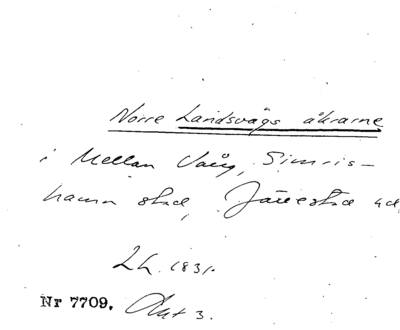 Norre Landsvägs åkrarne
i Mellan Vång, Simris-
hamn stad, Järrestad hd.
LH. 1831.
Nr 7709. Akt 3.